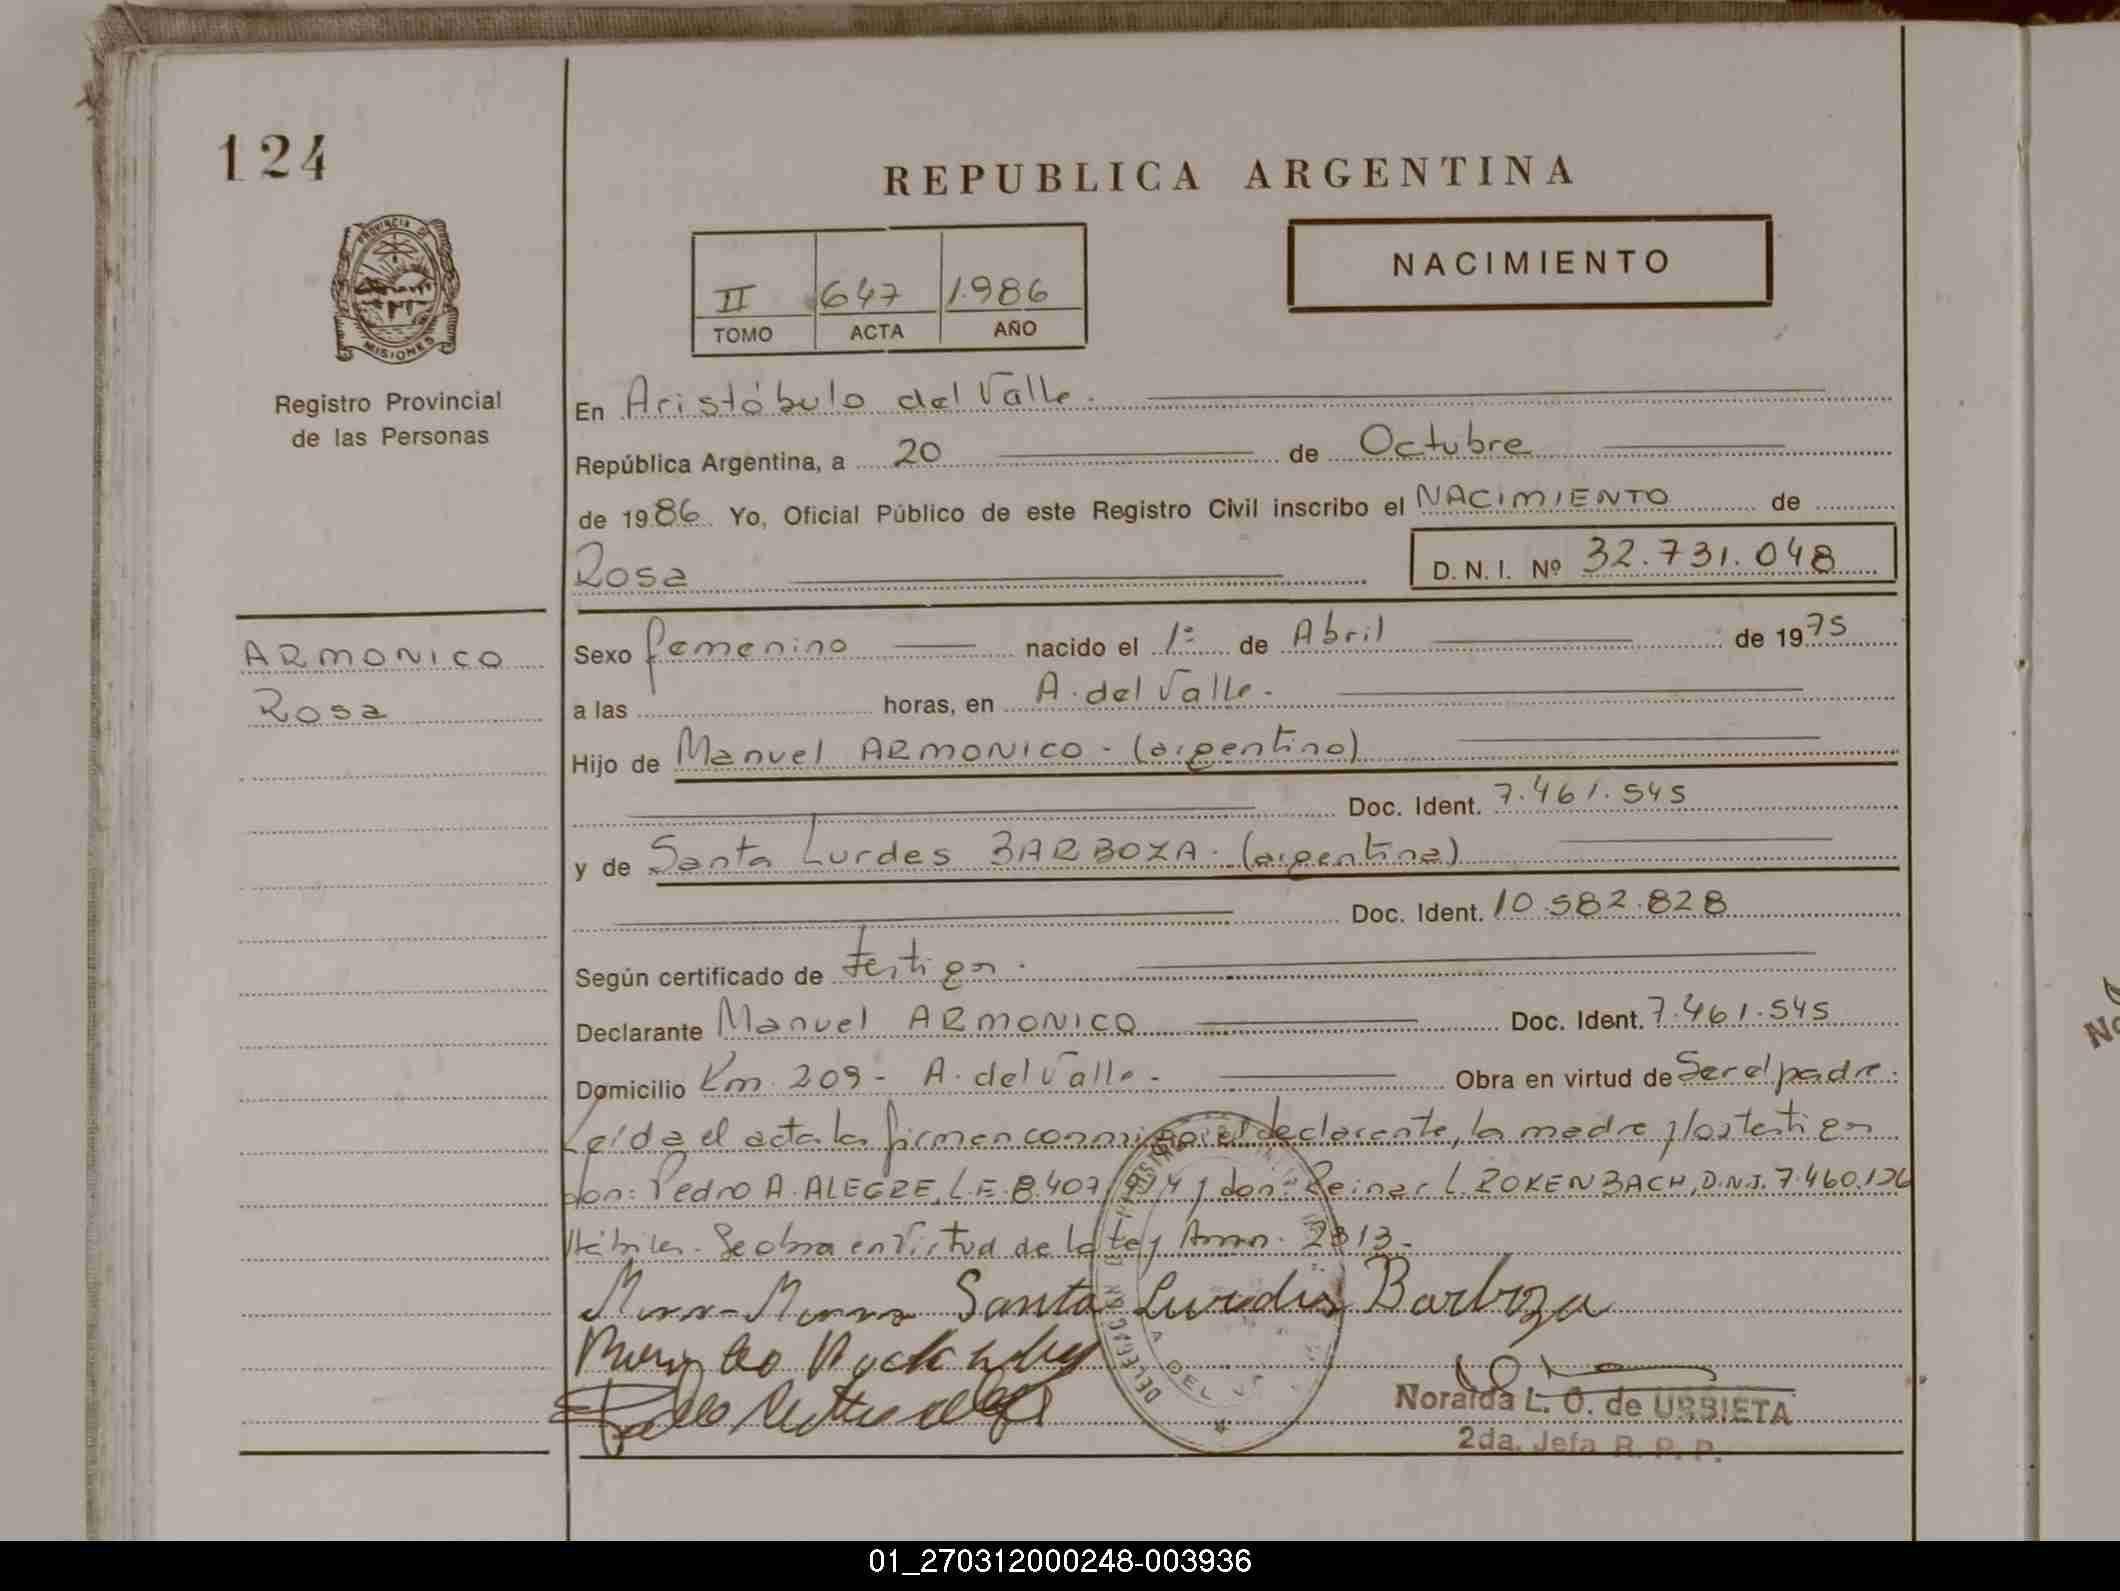 124
REPUBLICA ARGENTINA
PROVINCIA DE
MISIONES
II 647 1.986
TOMO ACTA AÑO
NACIMIENTO
Registro Provincial
de las Personas
En Aristóbulo del Valle.
República Argentina, a 20 de Octubre
de 1986. Yo, Oficial Público de este Registro Civil inscribo el NACIMIENTO de
Rosa D. N. I. Nº 32.731.048
ARMONICO
Rosa
Sexo femenino nacido el 1º de Abril de 1975
a las horas, en A. del Valle.
Hijo de Manuel ARMONICO - (argentino)
Doc. Ident. 7.461.545
y de Santa Lurdes BARBOZA. (argentina)
Doc. Ident. 10.582.828
Según certificado de testigos.
Declarante Manuel ARMONICO Doc. Ident. 7.461.545
Domicilio Km. 209 - A. del Valle. Obra en virtud de Ser el padre.
Leída el acta la firman conmigo el declarante, la madre y los testigos
don: Pedro A. ALEGRE, L.E. 8.407. y don: Reinar L. ROKENBACH, D.N.I. 7.460.126
Hábiles. Se obra en Virtud de la ley 2313.
Santa Lurdis Barboza
Noralda L. O. de URBIETA
2da. Jefa R. P. P.
01_270312000248-003936